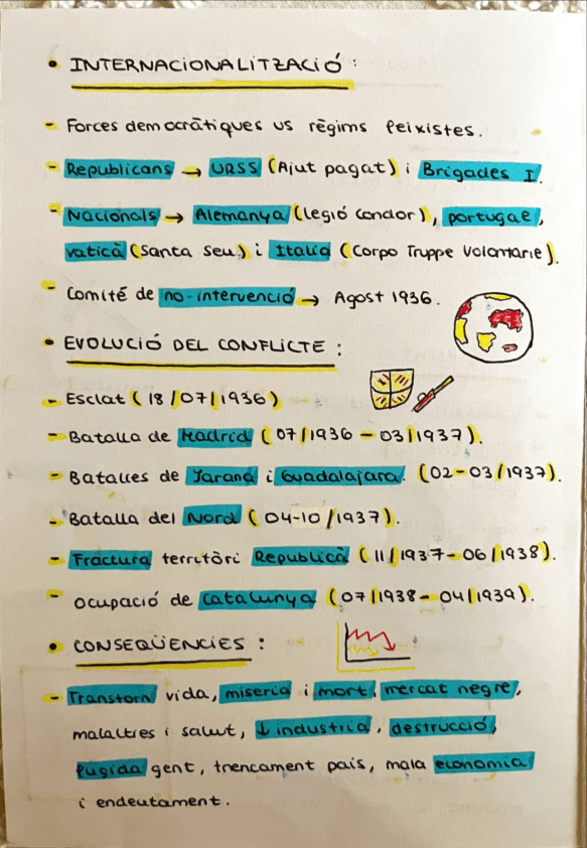 • INTERNACIONALITZACIÓ:
- Forces democràtiques vs règims feixistes.
- Republicans → URSS (Ajut pagat) i Brigades I.
- Nacionals → Alemanya (legió condor), portugal,
vaticà (Santa Seu) i Italia (Corpo Truppe Volontarie).
- Comité de no-intervenció → Agost 1936.
• EVOLUCIÓ DEL CONFLICTE:
- Esclat (18/07/1936)
- Batalla de Madrid (07/1936 - 03/1937).
- Batalles de Jarama i Guadalajara. (02-03/1937).
- Batalla del Nord (04-10/1937).
- Fractura territòri Republicà (11/1937- 06/1938).
- Ocupació de Catalunya (07/1938- 04/1939).
• CONSEQÜENCIES:
- Transtorn vida, miseria i mort, mercat negre,
malalties i salut, ↓ industria, destrucció,
fugida gent, trencament país, mala economia
i endeutament.